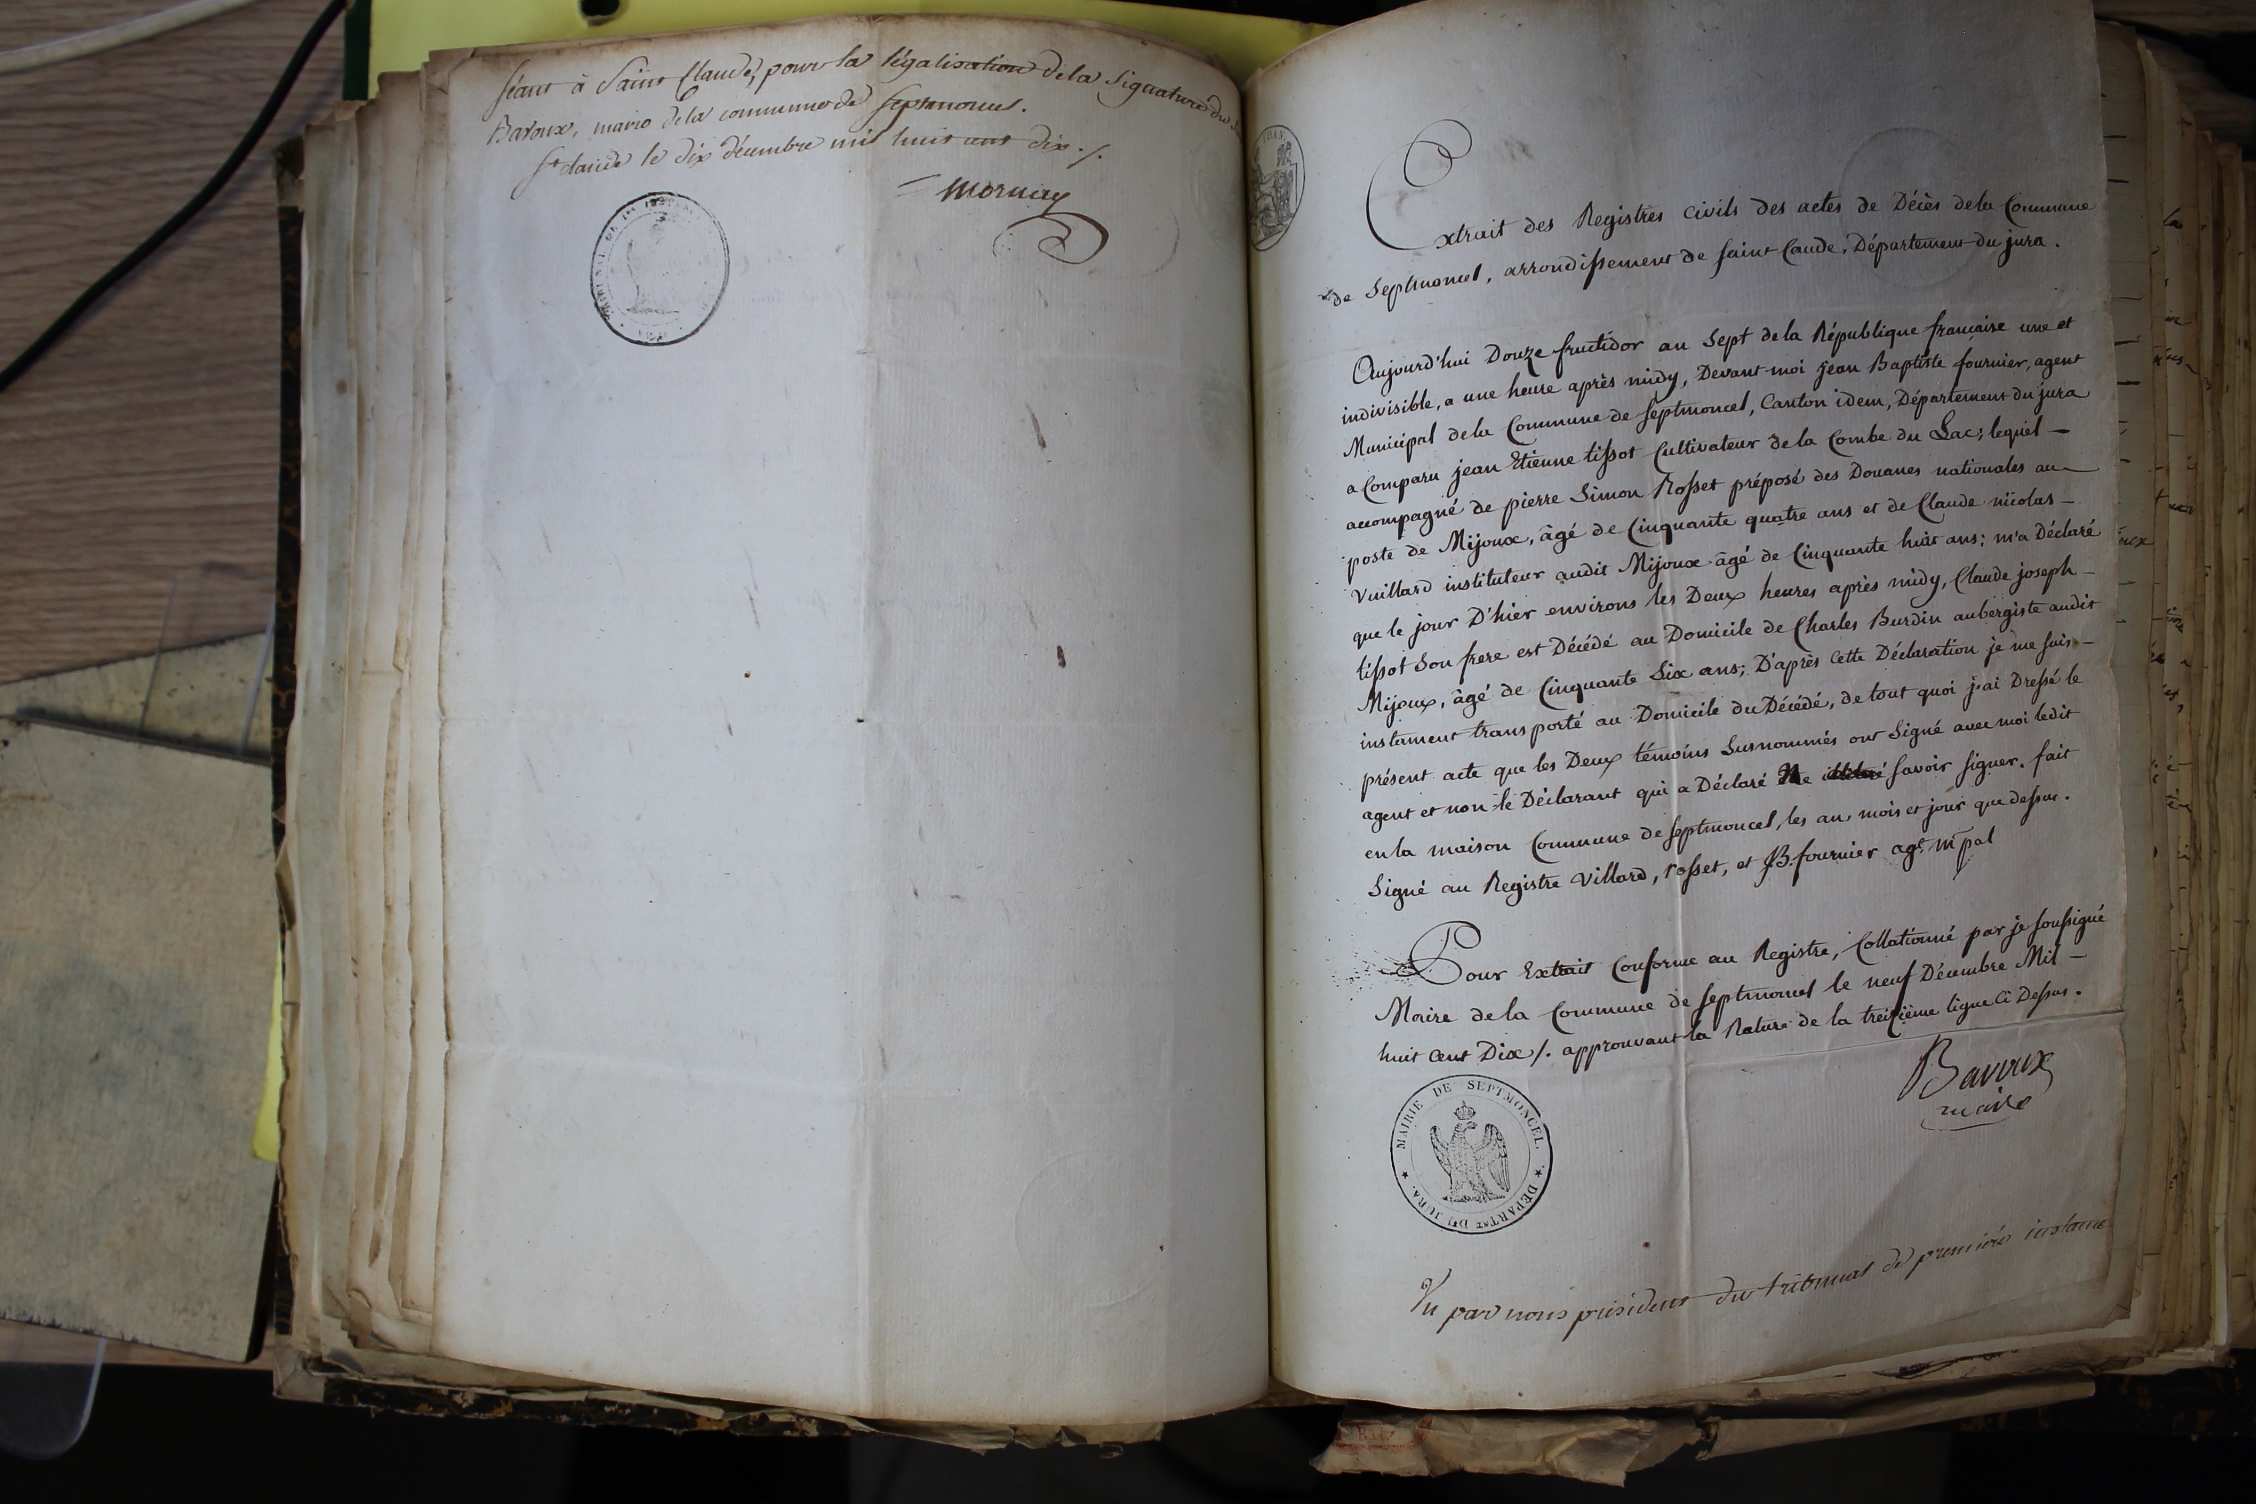 séant à Saint Claude, pour la légalisation de la signature du
Baroux, maire de la commune de Septmoncel.
St claude le dix décembre mil huit cent dix ./.
Mornay
Extrait des Registres civils des actes de Décès de la Commune
de Septmoncel, arrondissement de saint Caude, Département du jura.
Aujourd'hui Douze fructidor an Sept de la République francaise une et
indivisible, a une heure après midy, Devant moi jean Baptiste fournier, agent
Municipal de la Commune de septmoncel, Canton idem, Département du jura
a Comparu jean Etienne tissot Cultivateur de la Combe du Lac; lequel
accompagné de pierre Simon Rosset préposé des Douanes nationales au
poste de Mijoux, âgé de Cinquante quatre ans et de Claude nicolas
Vuillard instituteur audit Mijoux âgé de Cinquante huit ans; m'a Déclaré
que le jour D'hier environs les Deux heures après midy, Claude joseph
tissot Son frere est Décédé au Domicile de Charles Burdin aubergiste audit
Mijoux, âgé de Cinquante Six ans; D'après cette Déclaration je me suis
instament transporté au Domicile du Décédé, de tout quoi j'ai Dressé le
présent acte que les Deux témoins Susnommés ont Signé avec moi ledit
agent et non le Déclarant qui a Déclaré Ne savoir signer. fait
en la maison Commune de septmoncel, les an, mois et jour que dessus.
Signé au Registre Villard, rosset, et JB. fournier agt. mpal
Pour Extrait Conforme au Registre, Collationné par je soussigné
Maire de la Commune de septmoncel le neuf Décembre Mil
huit cent Dix /. approuvant la Rature de la treizième ligne Ci Dessus.
Baroux
maire
MAIRIE DE SEPTMONCEL ★ DÉPARTNT DU JURA. ★
Vu par nous président du tribunal de première instance